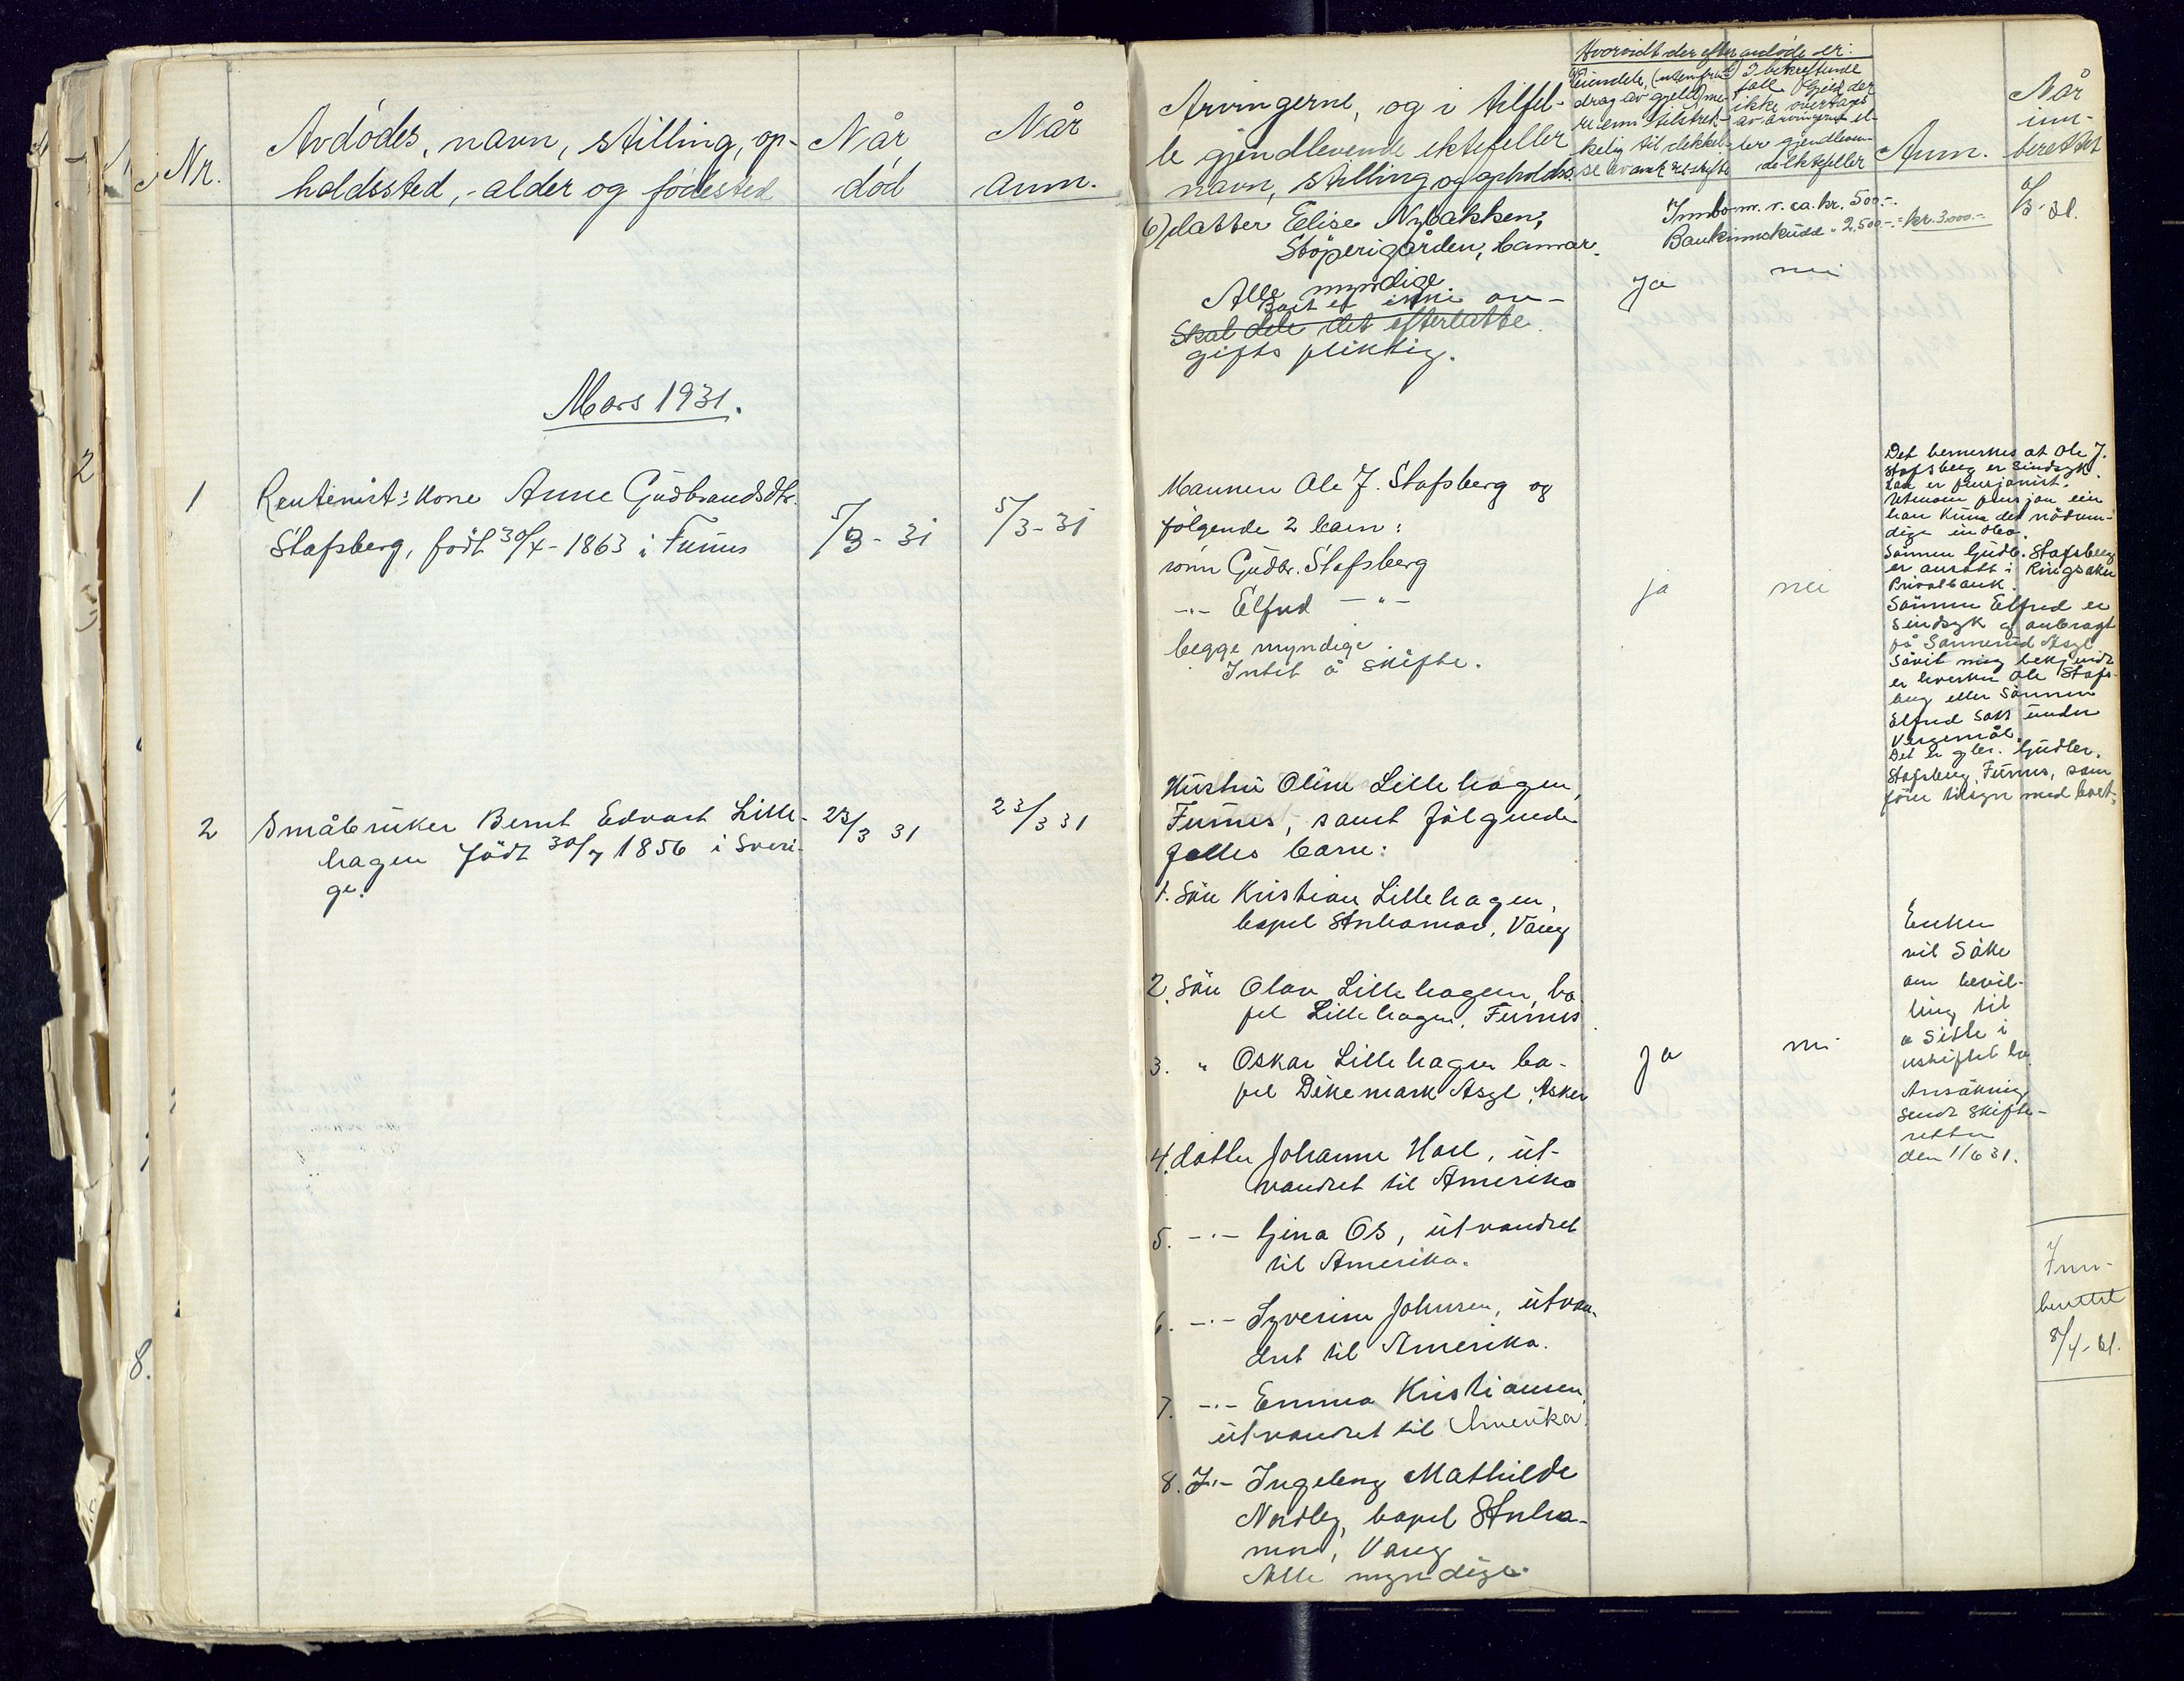 Nr.
Avdødes, navn, stilling, op-
holdssted, - alder og fødested
Når
død
Når
anm.
Mars 1931.
1
Rentenist: kone Anne Gudbrandsdtr.
Stafsberg, født 30/4-1863 i Furnes
5/3-31
5/3-31
2
Småbruker Bernt Edvart Lille-
hagen født 30/7 1856 i Sveri-
ge.
23/3 31
23/3 31
2
8.
Arvingerne, og i tilfel-
le gjendlevende ektefeller
navn, stilling og opholdss.
Hvorvidt der efter avdøde er:
Anm.
Når
inn-
berettet
6) datter Elise Nybakken,
Støperigården, Hamar.
Alle myndige.
Boet er ikke av-
Skal dele det efterlatte.
gifts pliktig.
Innbo m. v. ca. kr. 500.-
Bankinnskudd " 2.500.- = kr. 3.000.-
Ja
nei
Mannen Ole J. Stafsberg og
følgende 2 barn:
sønn Gudbr. Stafsberg
-"- Elfred -"-
begge myndige.
Intet å skifte.
ja
nei
Det bemerkes at Ole J.
Stafsberg er Sindsyk.
han er pensjonist.
Utenom pensjon eier
han kun det nødven-
dige innbo.
Sønnen Gudb. Stafsberg
er ansatt i Ringsaker
Privatbank.
Sønnen Elfred er
Sindsyk og anbragt
på Sannerud Asyl
Såvit mig bekjendt
er hverken Ole Stafs-
berg eller Sønnen
Elfred satt under
Vergemål.
Det er gbr. Gudbr.
Stafsberg, Furnes, som
fører tilsyn med boet.
Hustru Oline Lillehagen,
Furnes, samt følgende
felles barn:
1. Søn Kristian Lillehagen,
bopel Storhamar, Vang
2. Søn Olav Lillehagen, bo-
pel Lillehagen, Furnes.
3. " Oskar Lillehagen bo-
pel Dikemark Asyl, Asker
4. datter Johanne Hoel, ut-
vandret til Amerika
5. -"- Gina Os, utvandret
til Amerika.
6. -"- Syverine Johnsen, utvan-
dret til Amerika.
7. -"- Emma Kristiansen,
utvandret til Amerika.
8. -"- Ingeborg Mathilde
Nordby, bopel Storha-
mar, Vang
Alle myndige.
Ja
nei
Enken
vil Søke
om bevil-
ling til
å Sitte i
uskiftet bo
Ansøkning
sendt Skifte-
retten
den 1/6 31.
Inn-
berettet
8/4-31.